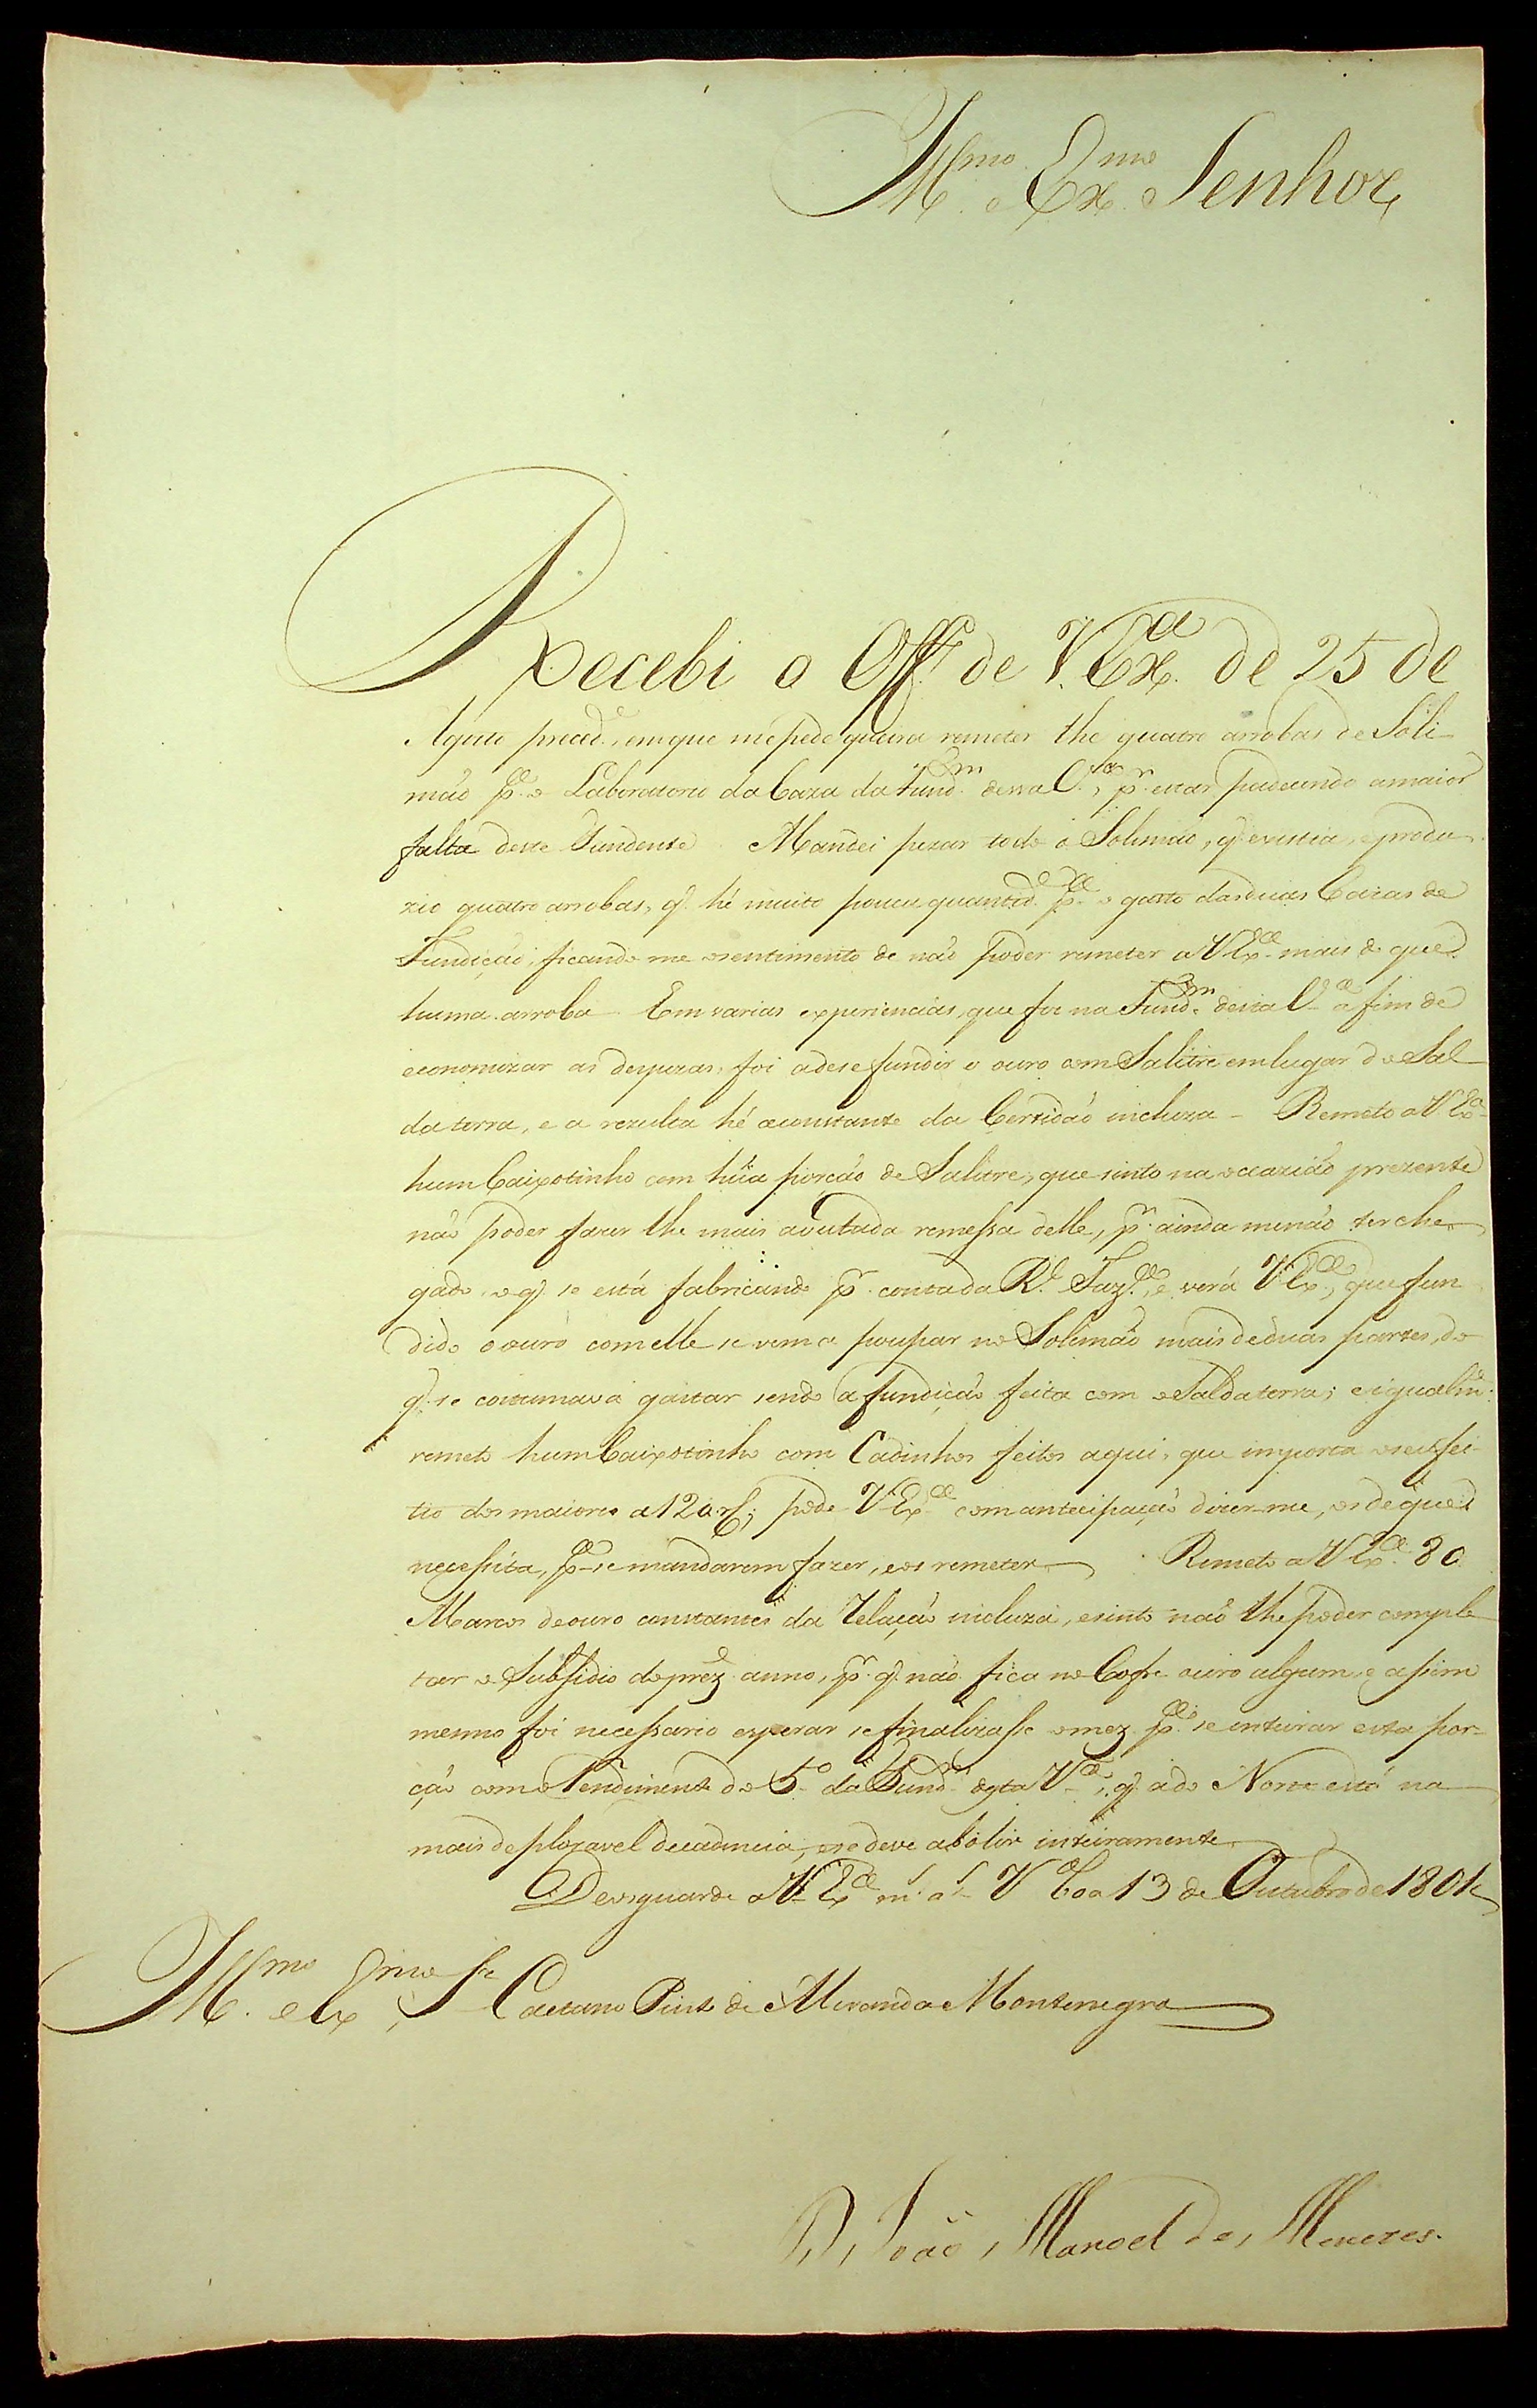 Ill.mo e Ex.mo Senhor
Recebi o Off.º de V. Ex.ª de 25 de
Agosto preced.e, em que me pede queira remeter lhe quatro arrobas de Soli-
mão p.ª o Laboratorio da Caza da Fund.m dessa C.ª, p.r estar padecendo a maior
falta deste Fundente. Mandei pezar todo o Solimão, q' existia, e produ-
zio quatro arrobas, q' hé muito pouca quantid.e p.ª o gasto das duas Cazas de
Fundição, ficando me o sentimento de não poder remeter a V. Ex.ª mais do que
huma arroba. Em varias experiencias, que fiz na Fund.m desta V.ª a fim de
economizar as despezas, foi a de se fundir o ouro com Salitre em lugar do Sal
da terra, e a rezulta hé a constante da Certidão incluza - Remeto a V. Ex.ª
hum Caixotinho com hũa porção de Salitre, que sinto na occazião prezente
não poder fazer lhe mais avultada remessa delle, p.r ainda me não ter che-
gado o q' se está fabricando p.r conta da R.l Faz.ª, e verá V. Ex.ª, que fun-
dido o ouro com elle se vem a poupar no Solimão mais de duas partes, do
q' se costumava gastar sendo a fundição feita com o Sal da terra; e igualm.e
remeto hum Caixotinho com Cadinhos feitos aqui, que importa o seu fei-
tio dos maiores a 120 r.s; pode V. Ex.ª com antecipação dizer-me, os de que
necessita, p.ª se mandarem fazer, e os remeter. Remeto a V. Ex.ª 80
Marcos de ouro constantes da Relação incluza, e sinto não lhe poder comple-
tar o Subsidio do prez.e anno, p.r q' não fica no Cofre ouro algum, e assim
mesmo foi necessario esperar se finalizasse o mez p.ª se inteirar esta por-
ção com o Rendimento do 5.º da Fund.m desta V.ª, q' a do Norte está na
mais deploravel decadencia, e se deve abolir inteiramente.
Deos guarde a V. Ex.ª m.s a.s V.ª Boa 13 de Outubro de 1801
Ill.mo e Ex.mo Sr. Caetano Pinto de Miranda Montenegro
D. João Manoel de Menezes.